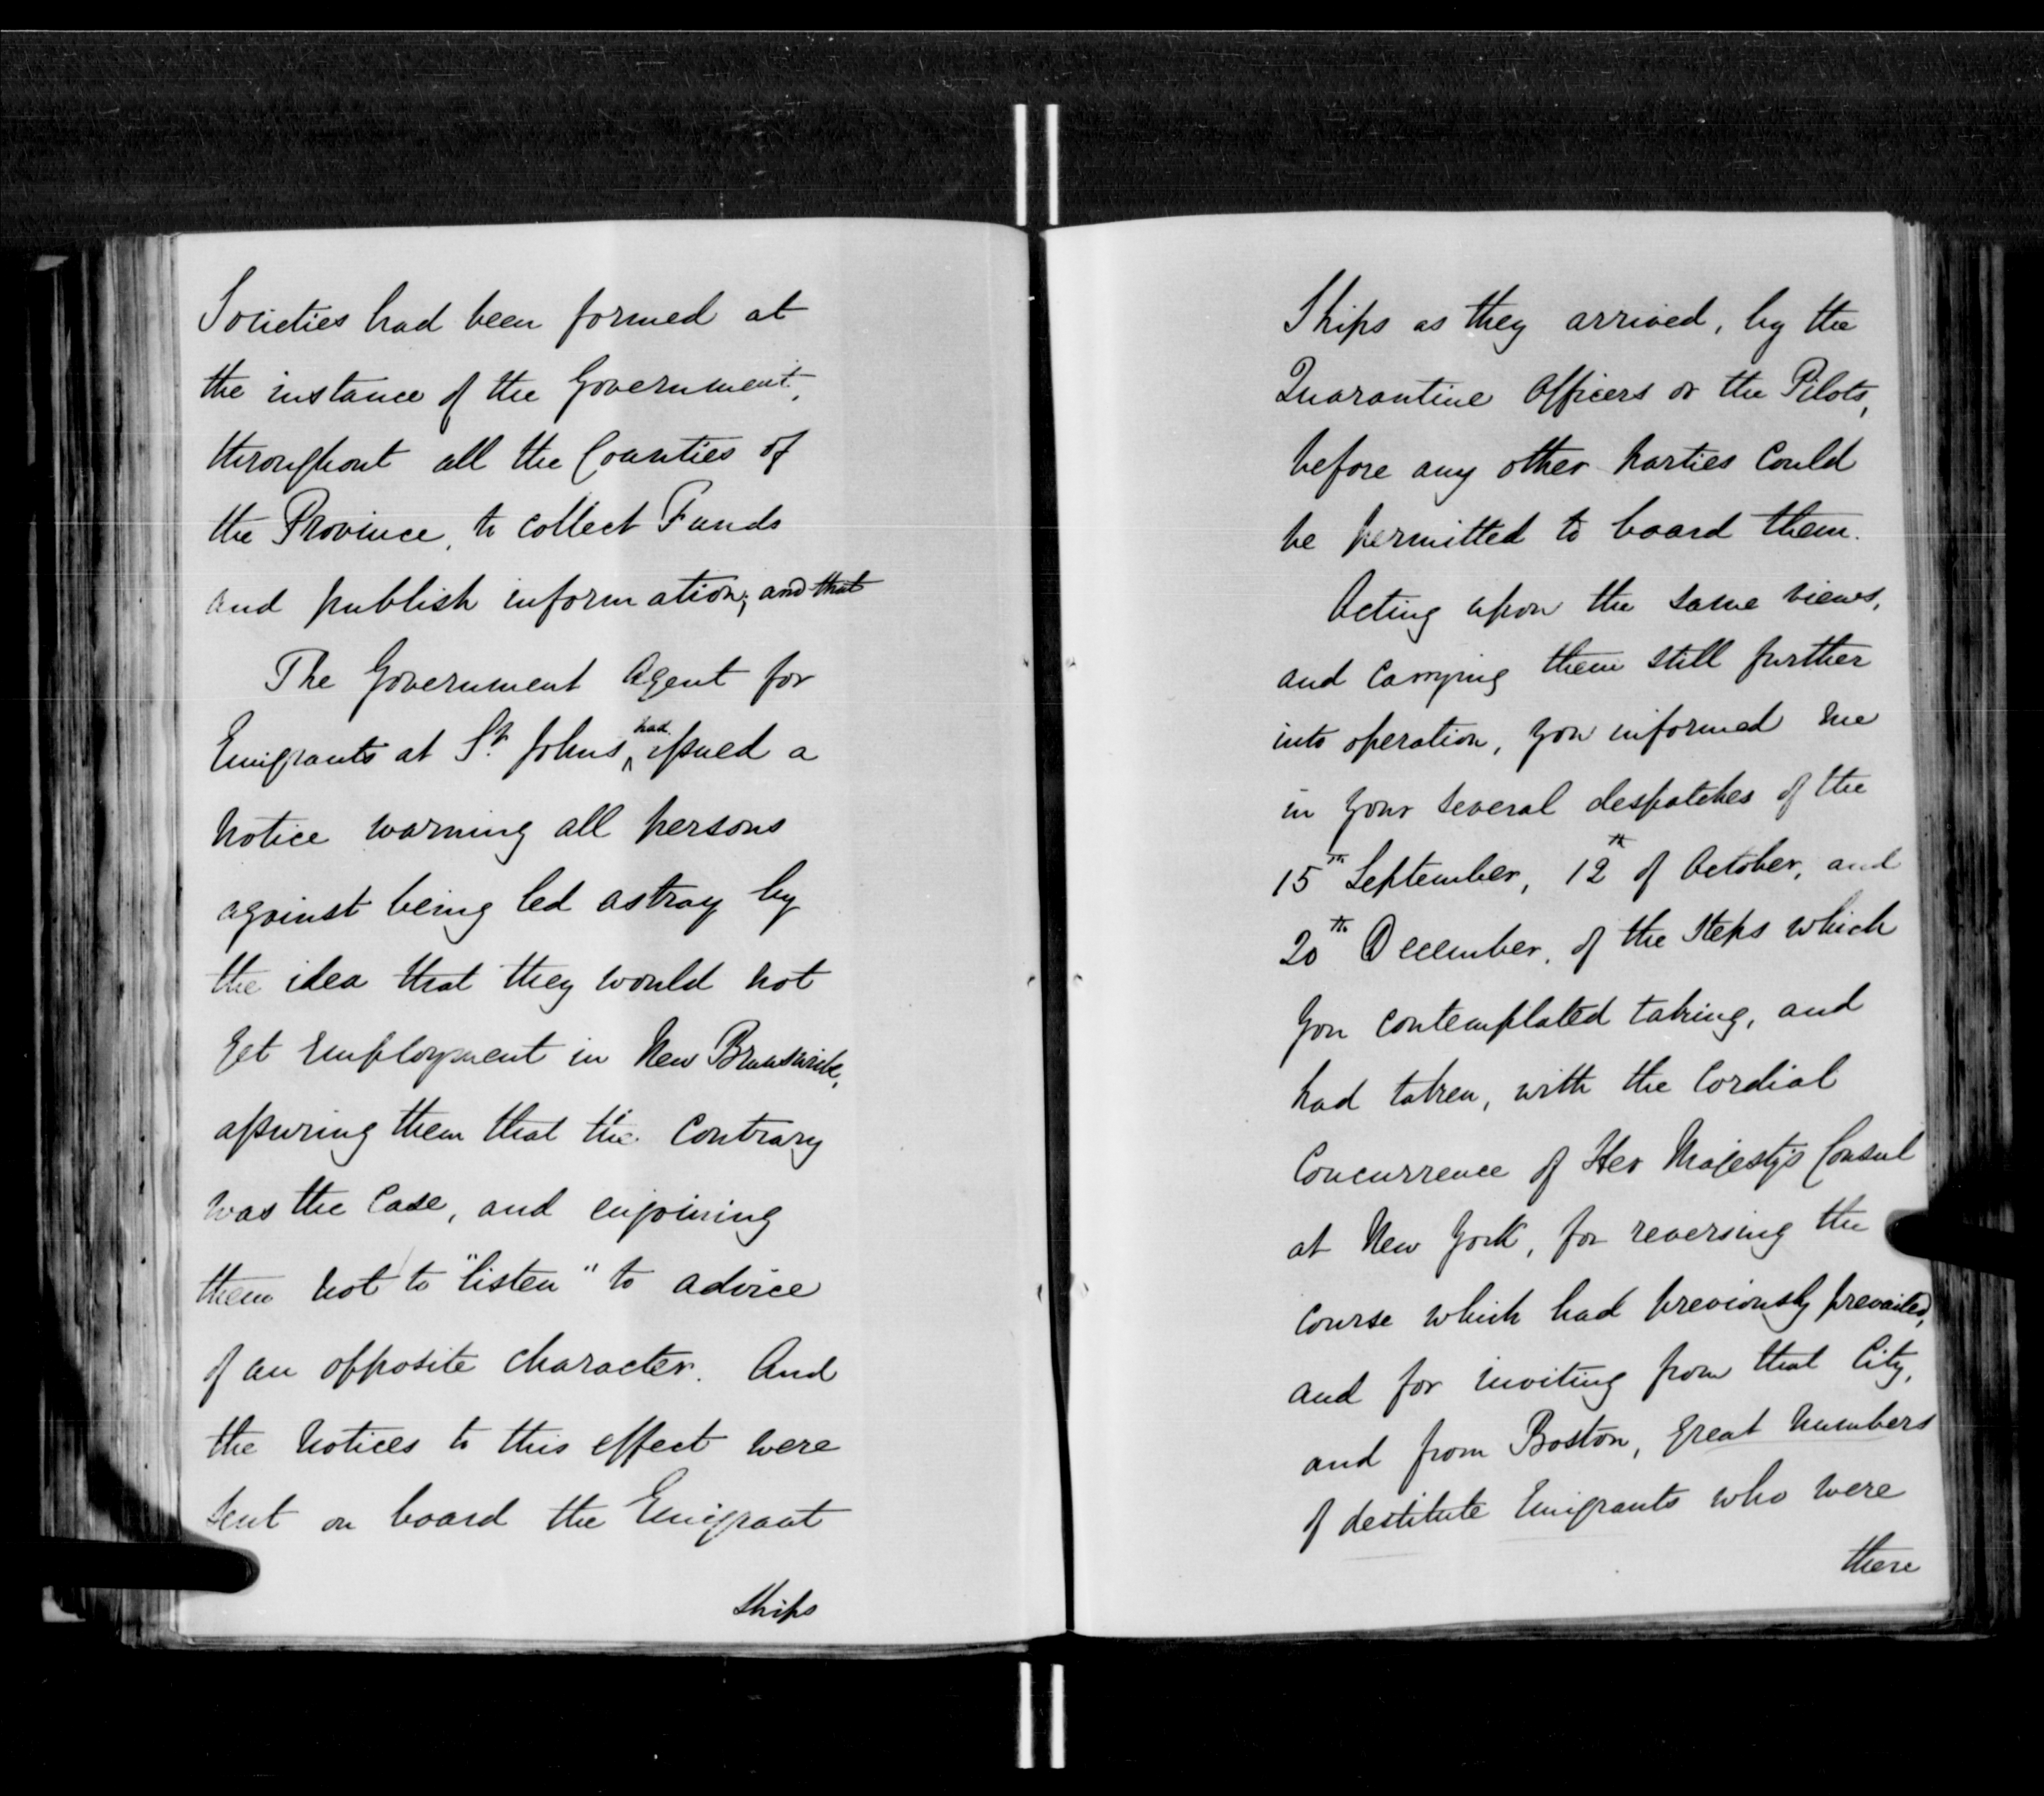 Societies had been formed at
the instance of the Government,
throughout all the Counties of
the Province, to collect Funds
and publish information; and that
The Government Agent for
Emigrants at St. Johns, had issued a
notice warning all persons
against being led astray by
the idea that they would not
get employment in New Brunswick,
assuring them that the contrary
was the case, and enjoining
them not to "listen" to advice
of an opposite character. And
the notices to this effect were
sent on board the Emigrant
ships
Ships as they arrived, by the
Quarantine Officers or the Pilots,
before any other parties could
be permitted to board them.
Acting upon the same views,
and carrying them still further
into operation, you informed me
in your several despatches of the
15th September, 12th of October, and
20th December, of the steps which
you contemplated taking, and
had taken, with the cordial
concurrence of Her Majesty's Consul
at New York, for reversing the
course which had previously prevailed,
and for inviting from that City,
and from Boston, great numbers
of destitute Emigrants who were
there